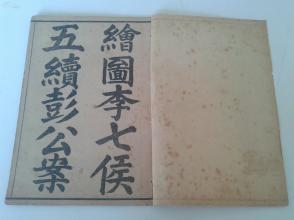 繪圖李七侯
五續彭公案